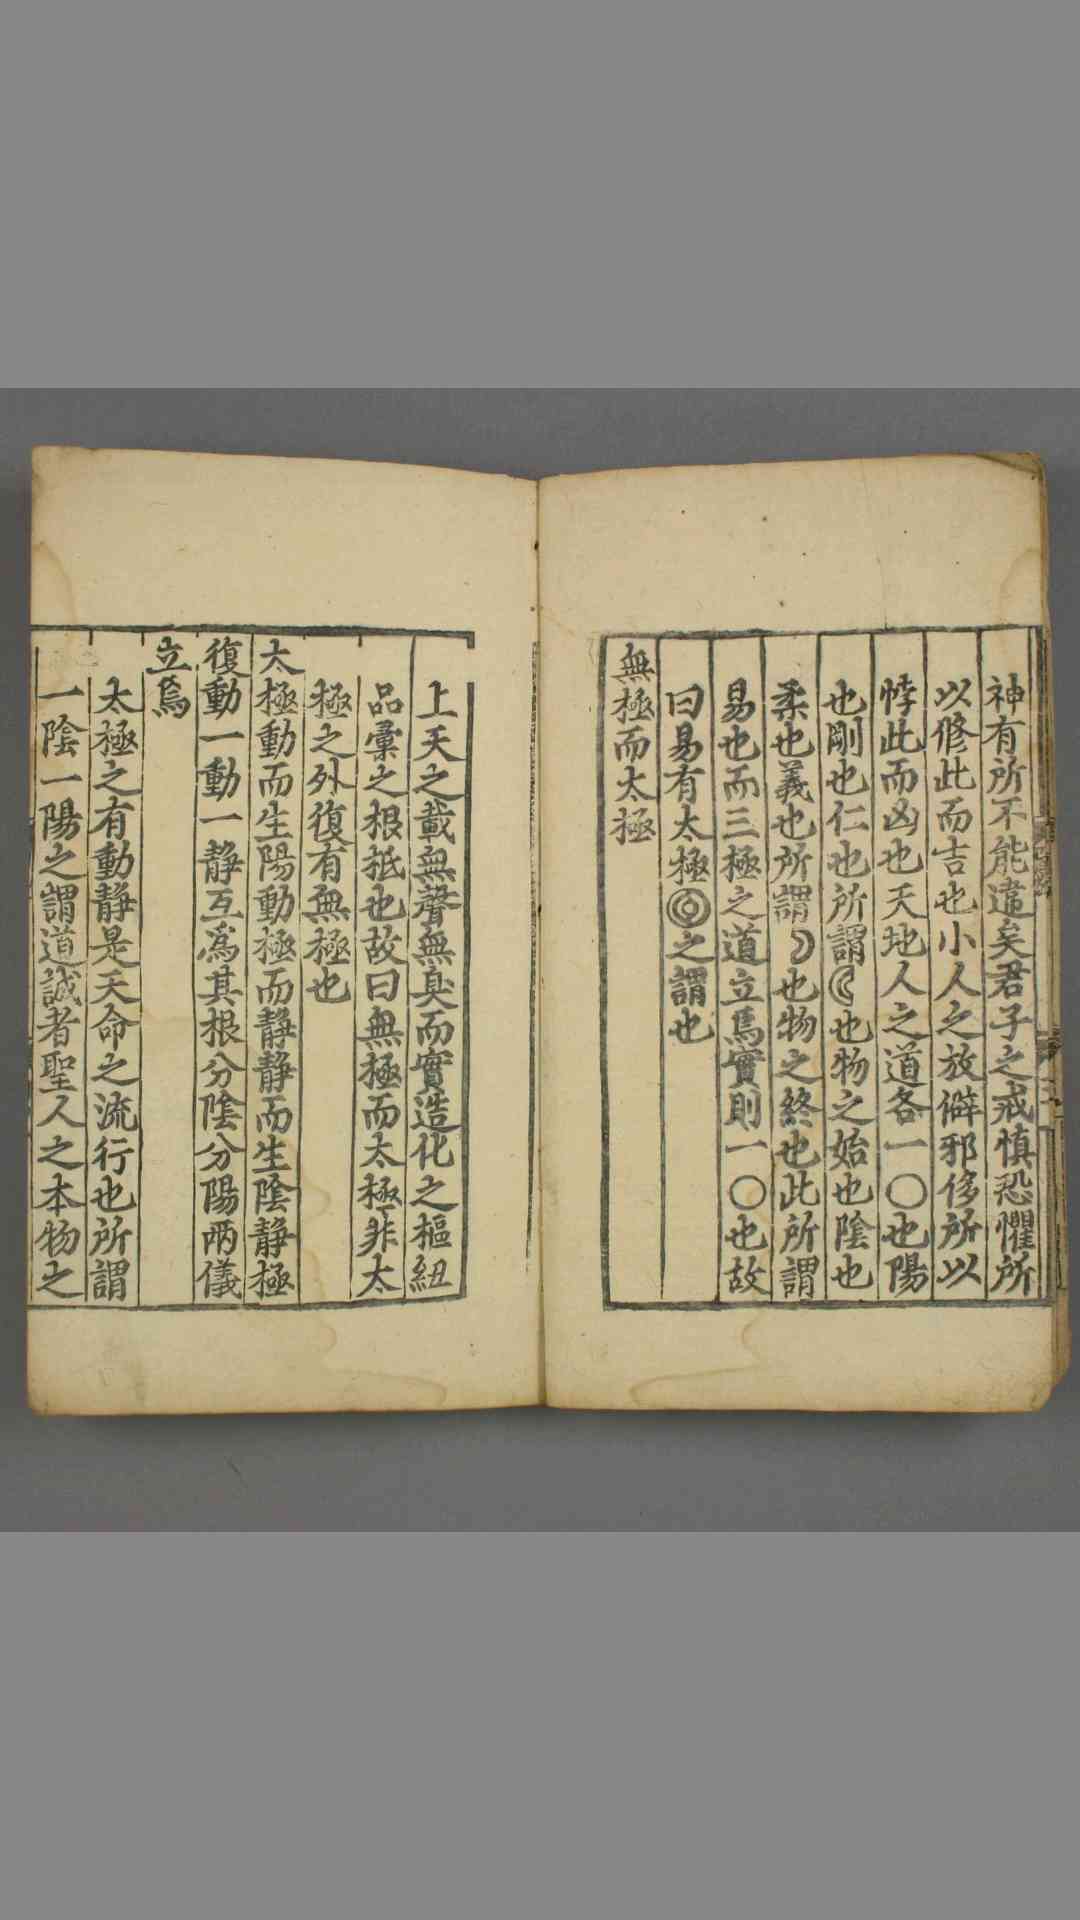 神有所不能違矣君子之戒慎恐懼所
以修此而吉也小人之放僻邪侈所以
悖此而凶也天地人之道各一〇也陽
也剛也仁也所謂☾也物之始也陰也
柔也義也所謂☽也物之終也此所謂
易也而三極之道立焉實則一〇也故
曰易有太極◎之謂也
無極而太極
上天之載無聲無臭而實造化之樞紐
品彙之根柢也故曰無極而太極非太
極之外復有無極也
太極動而生陽動極而静静而生陰静極
復動一動一静互爲其根分陰分陽兩儀
立焉
太極之有動静是天命之流行也所謂
一陰一陽之謂道誠者聖人之本物之